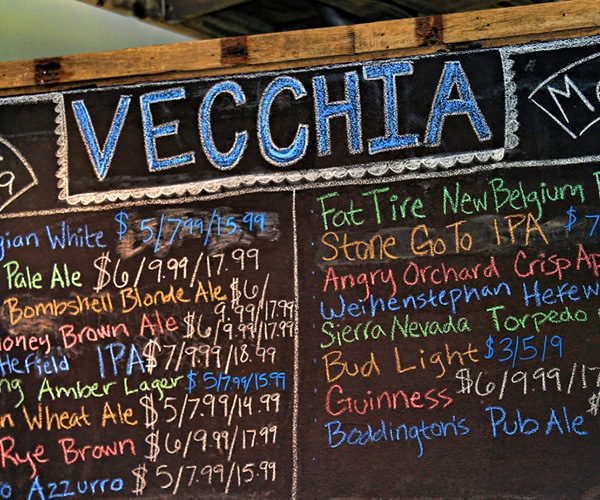 VECCHIA
gian White $5/7.99/15.99
Pale Ale $6/9.99/17.99
Bombshell Blonde Ale $6/9.99/17.99
oney Brown Ale $6/9.99/17.99
Hefield IPA $7/9.99/18.99
ng Amber Lager $5/7.99/15.99
n Wheat Ale $5/7.99/14.99
Rye Brown $6/9.99/17.99
o Azzurro $5/7.99/15.99
Fat Tire New Belgium
Stone Go To IPA $7
Angry Orchard Crisp Ap
Weihenstephan Hefew
Sierra Nevada Torpedo
Bud Light $3/5/9
Guinness $6/9.99/17
Boddington's Pub Ale $